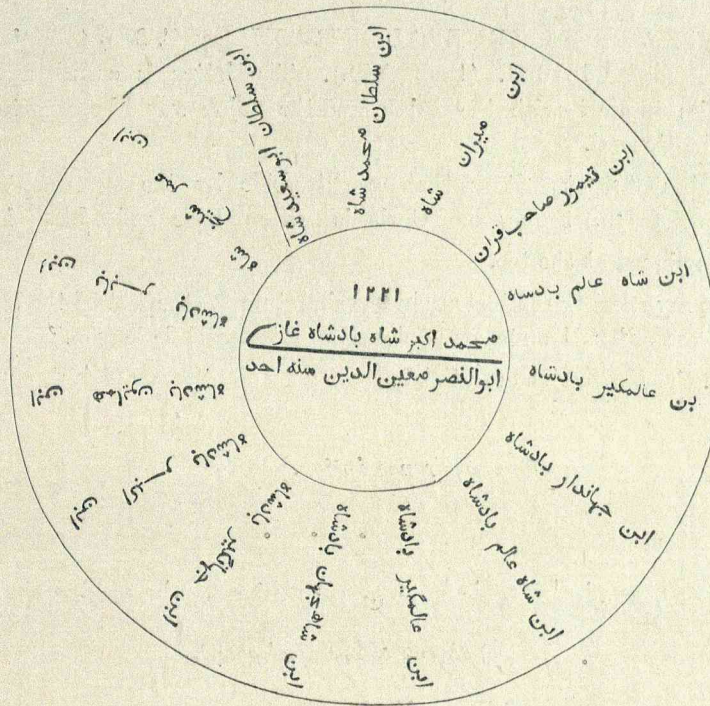 ۱۲۲۱
محمد اکبر شاه بادشاه غازی
ابوالنصر معین الدین سنه احد
ابن شاه عالم بادساه
بن عالمکیر بادشاه
ابن جهاندار بادشاه
ابن شاه عالم بادشاه
ابن عالمکیر بادشاه
ابن شاهجهان بادشاه
ابن جهانگیر بادشاه
ابن اکبر بادشاه
ابن همایون بادشاه
ابن بابر بادشاه
ابن عمر شیخ شاه
ابن سلطان ابو سعید شاه
ابن سلطان محمد شاه
ابن میران شاه
ابن تیمور صاحب قران